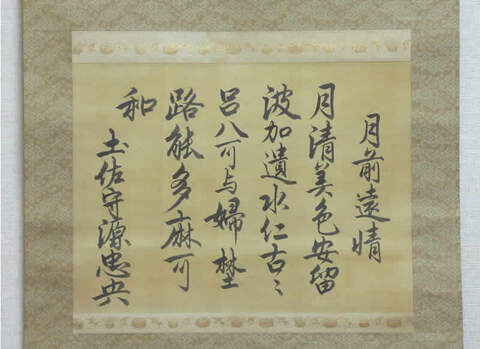 月前遠情
月清美色安留
波加遺水仁古〻
呂八可与婦埜
路能多麻可
和
土佐守源忠央